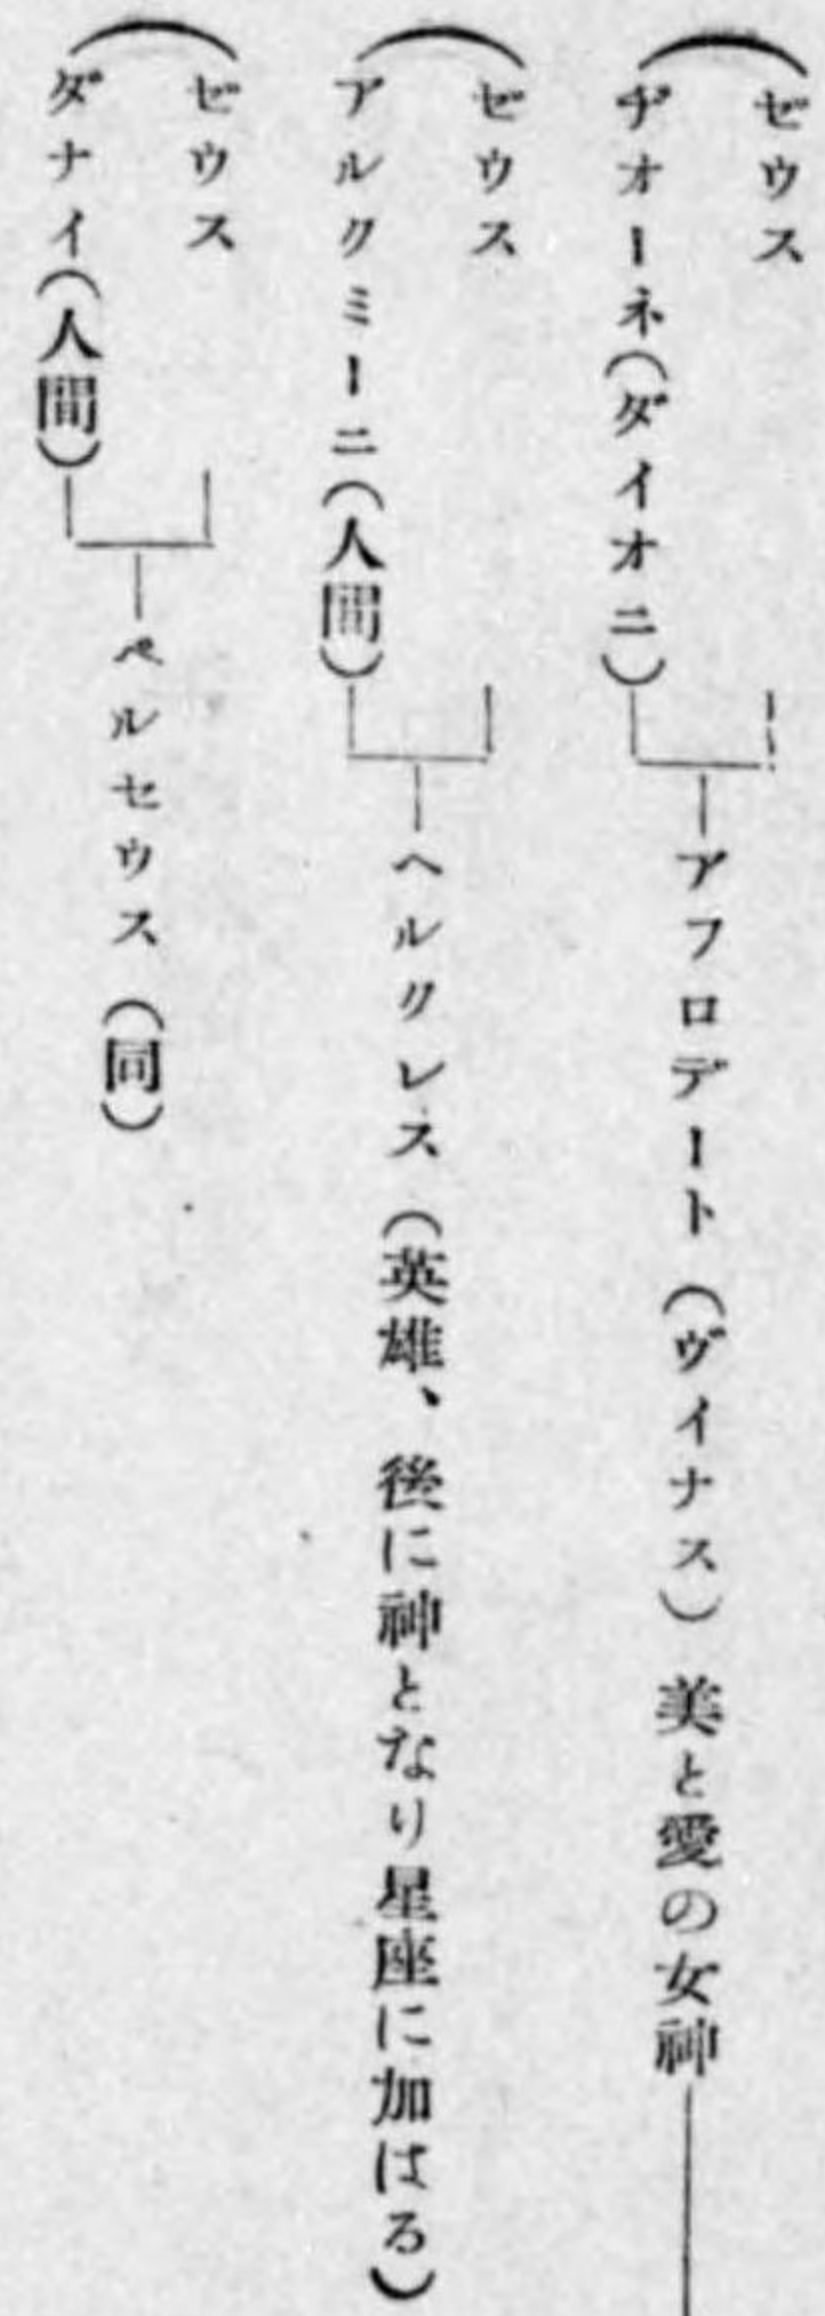 ゼウス
ヂオーネ(ダイオニ)
アフロデート(ヴイナス) 美と愛の女神
ゼウス
アルクミーニ(人間)
ヘルクレス(英雄、後に神となり星座に加はる)
ゼウス
ダナイ(人間)
ペルセウス(同)